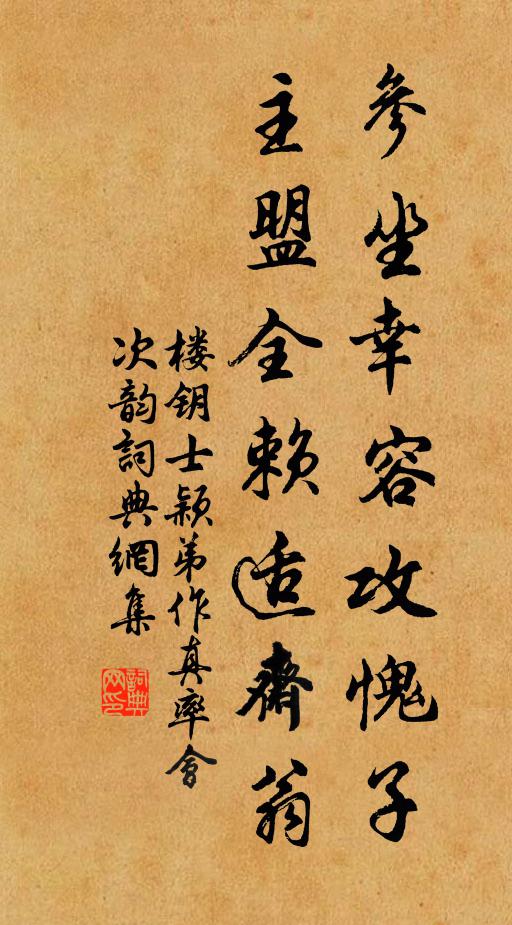 参坐幸容攻愧子
主盟全赖适齋翁
楼钥士颖弟作真率會
次韵詞典網集
詞典网印